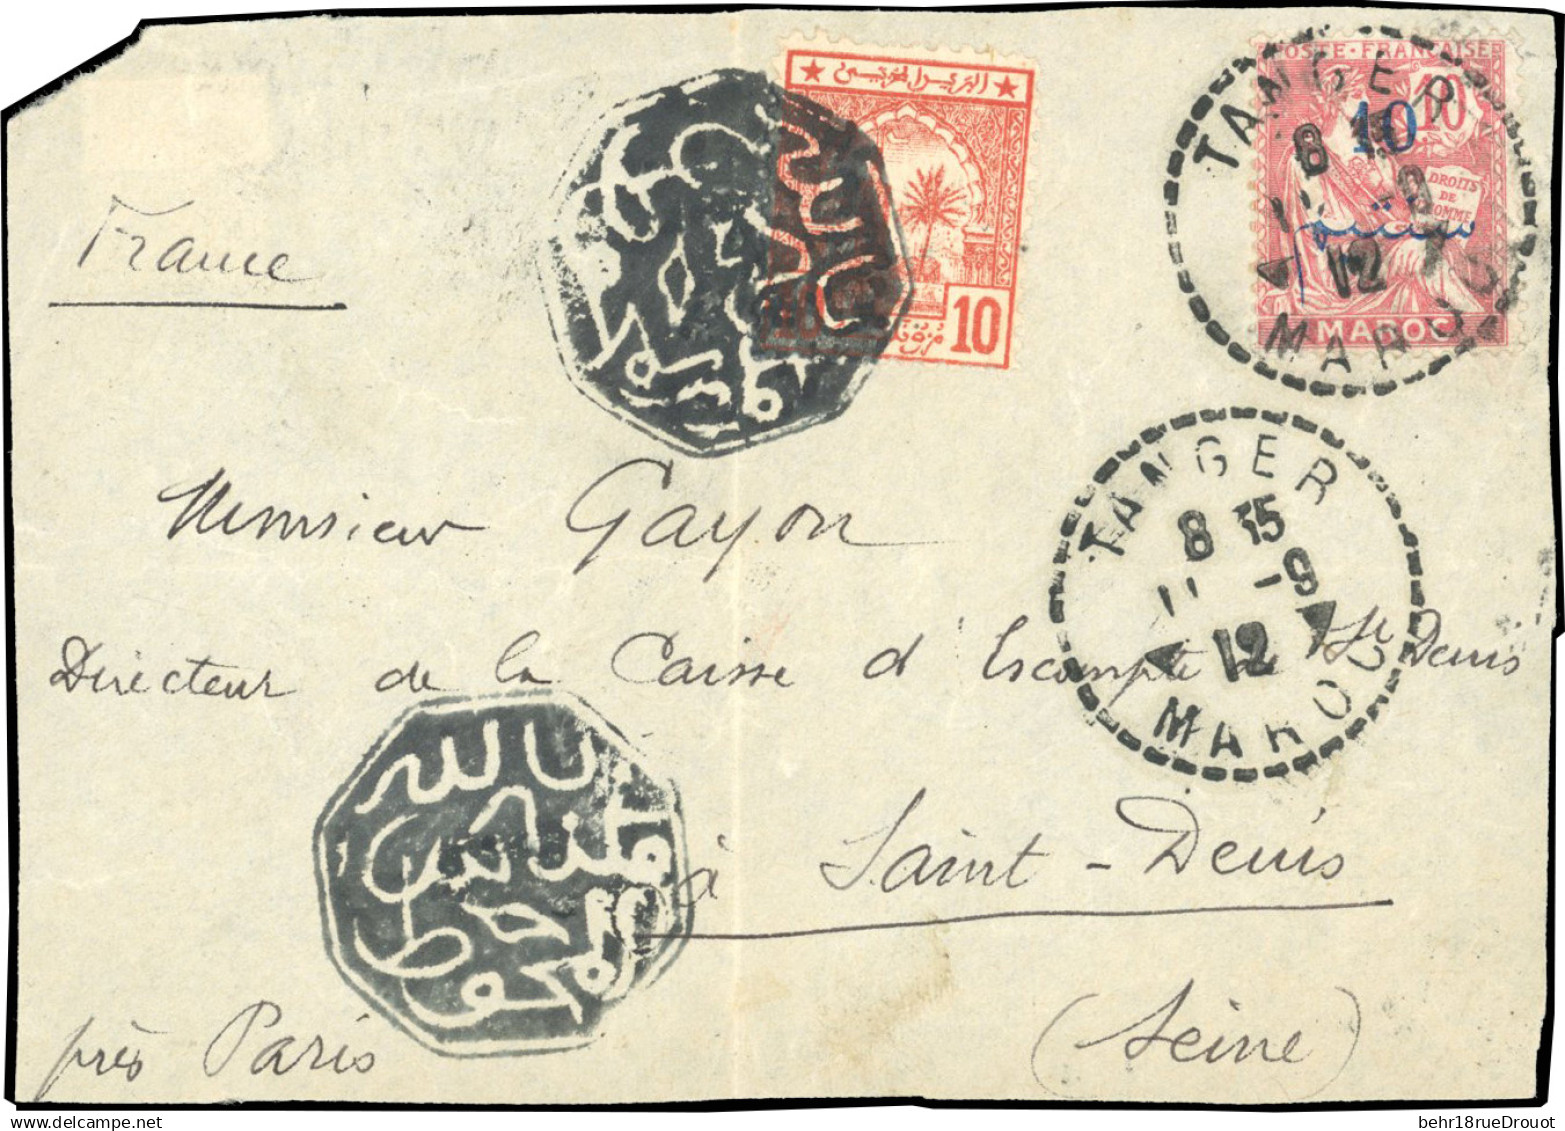 البريد المغربي
10
POSTE FRANÇAISE
10
10
DROITS DE L'HOMME
سنتيم
MAROC
TANGER
8 15
11 - 9
12
MAROC
France
Monsieur Gayon
TANGER
8 35
11 - 9
12
MAROC
Directeur de la Caisse d'Escompte de St Denis
à Saint-Denis
près Paris
(Seine)
behr18rueDrouot